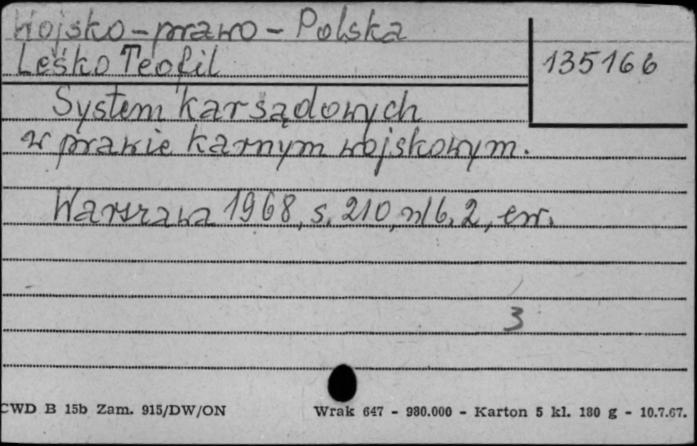 Wojsko - prawo - Polska
Leśko Teofil
135166
System kar sądowych
w prawie karnym wojskowym.
Warszawa 1968, s. 210, nlb. 2, err.
3
CWD B 15b Zam. 915/DW/ON
Wrak 647 - 980.000 - Karton 5 kl. 180 g - 10.7.67.